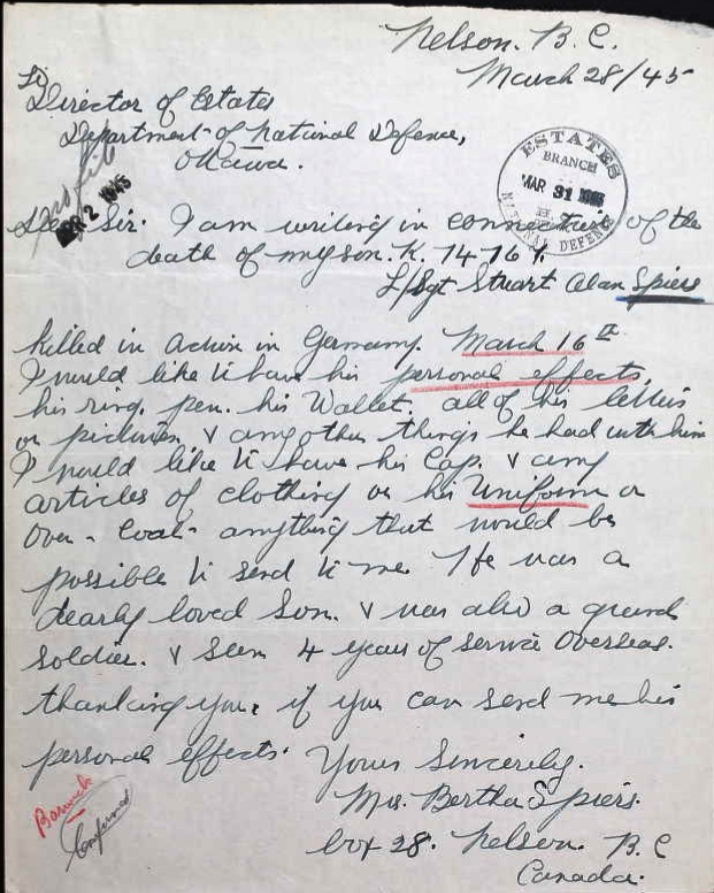 Nelson. B. C.
March 28/45
To
Director of Estates
Department of National Defence,
Ottawa.
APR 2 1945
ESTATES
BRANCH
MAR 31
NATIONAL DEFENCE
Dear Sir. I am writing in connection of the
death of my son. K. 14761.
L/Sgt Stuart Alan Spiers
killed in Action in Germany. March 16th
I would like to have his personal effects,
his ring, pen. his Wallet. all of his letters
or pictures & any other things he had with him
I would like to have his Cap. & any
articles of clothing or his Uniform or
Over-Coat anything that would be
possible to send to me He was a
dearly loved Son. & was also a grand
soldier. & seen 4 years of service Overseas.
thanking you, if you can send me his
personal effects. Yours Sincerely.
Mrs. Bertha Spiers.
box 28. Nelson. B. C
Canada.
Confirmed